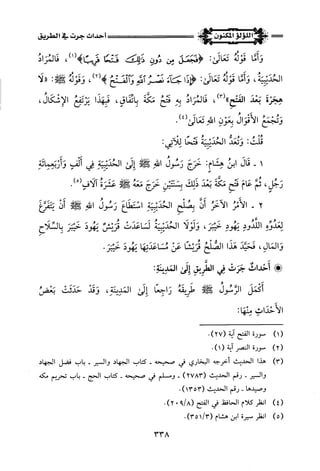 اللؤلؤ المكنون
أحداث جرت في الطريق
وَأَمَّا قَوْلُهُ تَعَالَى: ﴿فَجَعَلَ مِن دُونِ ذَٰلِكَ فَتْحًا قَرِيبًا﴾(١)، فَالْمُرَادُ
الحُدَيْبِيَةُ، وَأَمَّا قَوْلُهُ تَعَالَى: ﴿إِذَا جَاءَ نَصْرُ اللَّهِ وَالْفَتْحُ﴾(٢)، وَقَوْلُهُ ﷺ: «لَا
هِجْرَةَ بَعْدَ الفَتْحِ»(٣)، فَالْمُرَادُ بِهِ فَتْحُ مَكَّةَ بِاتِّفَاقٍ، فَبِهَذَا يَرْتَفِعُ الإِشْكَالُ،
وَتَجْتَمِعُ الأَقْوَالُ بِعَوْنِ اللهِ تَعَالَى(٤).
قُلْتُ: وَتُعَدُّ الحُدَيْبِيَةُ فَتْحًا لِلْآتِي:
١ - قَالَ ابْنُ هِشَامٍ: خَرَجَ رَسُولُ اللهِ ﷺ إِلَى الحُدَيْبِيَةِ فِي أَلْفٍ وَأَرْبَعِمِائَةِ
رَجُلٍ، ثُمَّ عَامَ فَتْحِ مَكَّةَ بَعْدَ ذَلِكَ بِسَنَتَيْنِ خَرَجَ مَعَهُ ﷺ عَشَرَةُ آلَافٍ(٥).
٢ - الأَمْرُ الآخَرُ أَنَّ بِصُلْحِ الحُدَيْبِيَةِ اسْتَطَاعَ رَسُولُ اللهِ ﷺ أَنْ يَتَفَرَّغَ
لِعَدُوِّهِ اللَّدُودِ يَهُودِ خَيْبَرَ، وَلَوْلَا الحُدَيْبِيَةُ لَسَاعَدَتْ قُرَيْشٌ يَهُودَ خَيْبَرَ بِالسِّلَاحِ
وَالمَالِ، فَحَيَّدَ هَذَا الصُّلْحُ قُرَيْشًا عَنْ مُسَاعَدَتِهَا يَهُودَ خَيْبَرَ.
أَحْدَاثٌ جَرَتْ فِي الطَّرِيقِ إِلَى المَدِينَةِ:
أَكْمَلَ الرَّسُولُ ﷺ طَرِيقَهُ رَاجِعًا إِلَى المَدِينَةِ، وَقَدْ حَدَثَتْ بَعْضُ
الأَحْدَاثِ مِنْهَا:
(١) سورة الفتح آية (٢٧).
(٢) سورة النصر آية (١).
(٣) هذا الحديث أخرجه البخاري في صحيحه - كتاب الجهاد والسير - باب فضل الجهاد
والسير - رقم الحديث (٢٧٨٣)، ومسلم في صحيحه - كتاب الحج - باب تحريم مكة
وصيدها - رقم الحديث (١٣٥٣).
(٤) انظر كلام الحافظ في الفتح (٢٠٩/٨).
(٥) انظر سيرة ابن هشام (٣٥١/٣).
٣٣٨